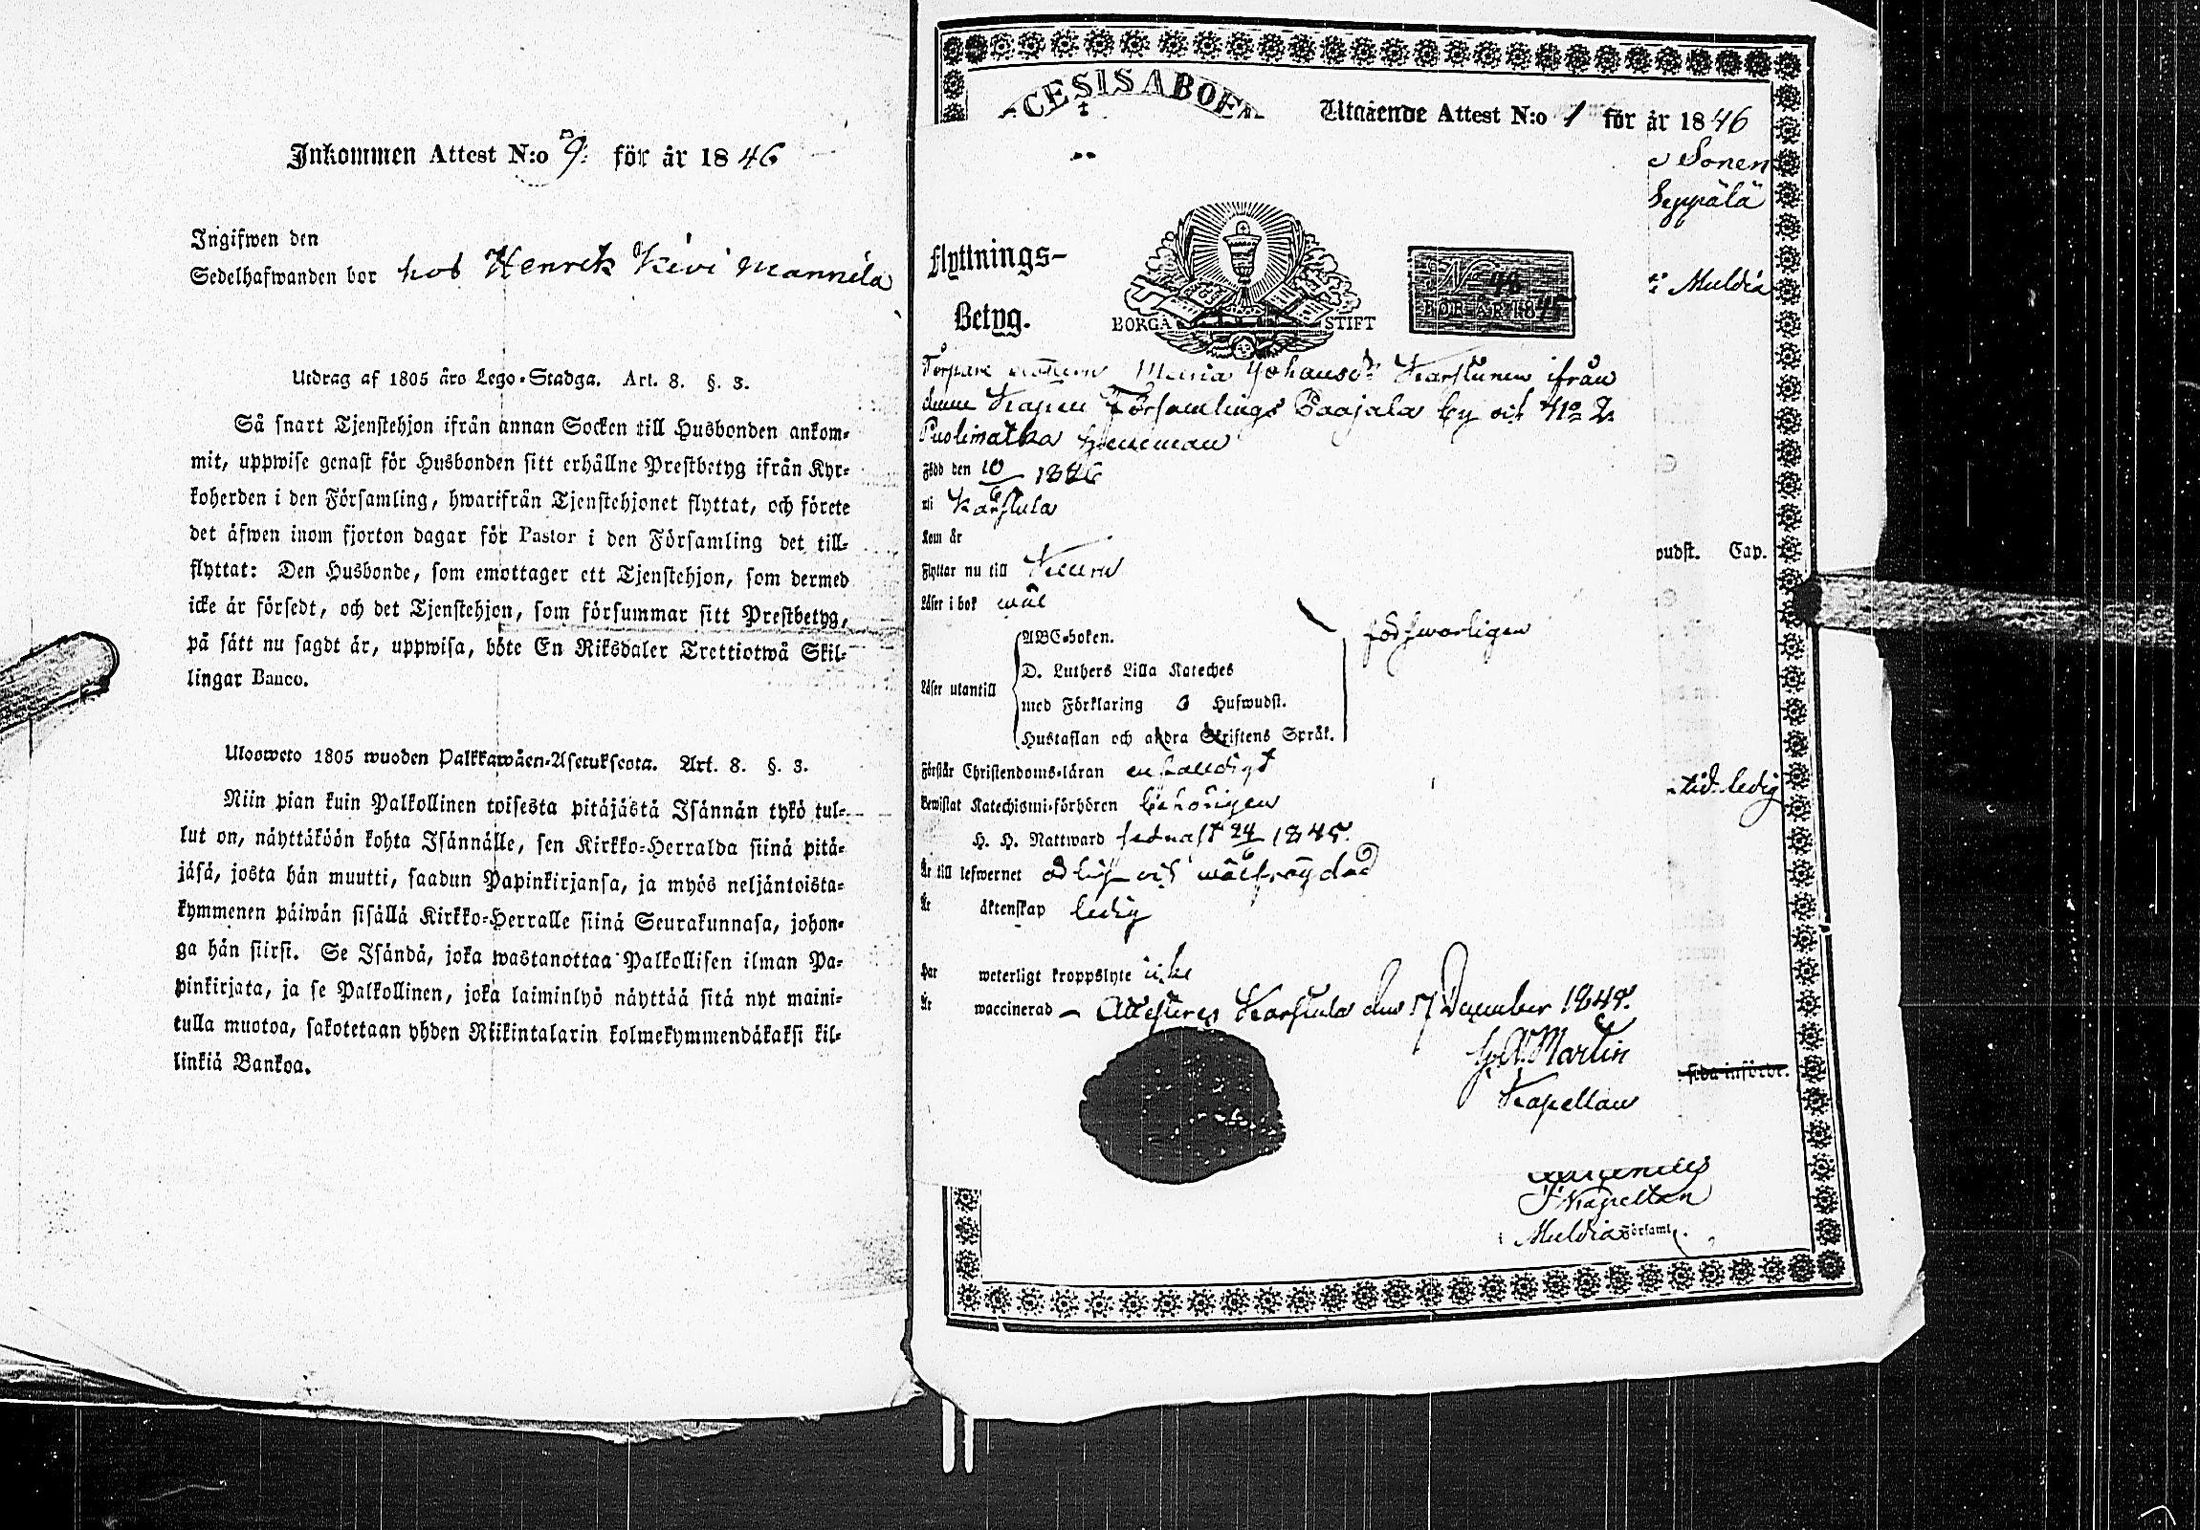 Inkommen Attest N:o 9. för år 1846
Ingifwen den
Sedelhafwanden bor hos Henrik Kivi Mannila
Utdrag af 1805 åro Lego-Stadga. Art. 8. §. 3.
Så snart Tjenstehjon ifrån annan Socken till Husbonden ankom-
mit, uppwise genast för Husbonden sitt erhållne Prestbetyg ifrån Kyr-
koherden i den Församling, hwarifrån Tjenstehjonet flyttat, och förete
det äfwen inom fjorton dagar för Pastor i den Församling det till-
flyttat: Den Husbonde, som emottager ett Tjenstehjon, som dermed
icke är försedt, och det Tjenstehjon, som försummar sitt Prestbetyg,
på sätt nu sagdt är, uppwisa, böte En Riksdaler Trettiotwå Skil-
lingar Banco.
Ulosweto 1805 wuoden Palkkawäen-Asetuksesta. Art. 8. §. 3.
Niin pian kuin Palkollinen toisesta pitäjästä Isännän tykö tul-
lut on, näyttäköön kohta Isännälle, sen Kirkko-Herralda siinä pitä-
jäsä, josta hän muutti, saadun Papinkirjansa, ja myös neljäntoista-
kymmenen päiwän sisällä Kirkko-Herralle siinä Seurakunnasa, johon-
ga hän siirsi. Se Isändä, joka wastanottaa Palkollisen ilman Pa-
pinkirjata, ja se Palkollinen, joka laiminlyö näyttää sitä nyt maini-
tulla muotoa, sakotetaan yhden Riikintalarin kolmekymmendäkaksi kil-
linkiä Bankoa.
CESIS ABOEN
Utgående Attest N:o 1 för år 1846
Sonen
Seppälä
Muldia
Flyttnings-
Betyg.
BORGÅ STIFT
FÖR ÅR 1845
Maria Johansdr Karstunen ifrån
denna Kapell Församlings Paajala by och No 2
Puolimatka hemman
Född den 10 1826
uti Karstula
Kom år
Flyttar nu till Keuru
Läser i bok wäl
Läser utantill
ABC-boken.
D. Luthers Lilla Kateches
med Förklaring Hufwudst.
Hustaflan och andra Skriftens Språk.
försvarligen
Förstår Christendoms-läran enfaldigt
Bewistat Katechismi-förhören behörigen
H. H. Nattward sednast 24/6 1845.
Är till lefwernet och wälfrägdad
Är äktenskap ledig
Har weterligt kroppslyte icke
Är waccinerad – Attesteres Karstula den 17 December 1845.
Martin
Kapellan
oudst. Cap.
tid ledig
sida införde.
Kapellan
i Muldia Församl.